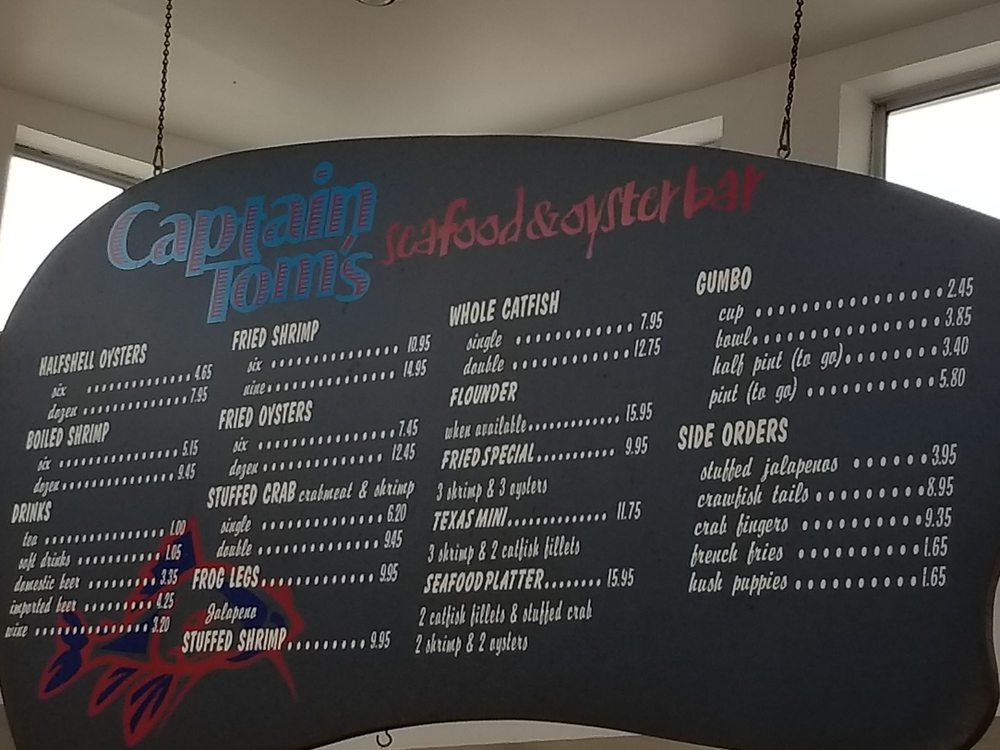 Captain
Tom's
seafood & oyster bar
HALFSHELL OYSTERS
six .............. 4.65
dozen .............. 7.95
BOILED SHRIMP
six .............. 5.15
dozen .............. 9.45
DRINKS
tea .............. 1.00
soft drinks .............. 1.05
domestic beer .............. 3.35
imported beer .............. 4.25
wine .............. 3.20
FRIED SHRIMP
six .............. 10.95
nine .............. 14.95
FRIED OYSTERS
six .............. 7.45
dozen .............. 12.45
STUFFED CRAB crabmeat & shrimp
single .............. 6.20
double .............. 9.45
FROG LEGS .............. 9.95
Jalapeno
STUFFED SHRIMP .......... 9.95
WHOLE CATFISH
single ........... 7.95
double ............ 12.75
FLOUNDER
when available ............. 15.95
FRIED SPECIAL ........... 9.95
3 shrimp & 3 oysters
TEXAS MINI .............. 11.75
3 shrimp & 2 catfish fillets
SEAFOOD PLATTER ........ 15.95
2 catfish fillets & stuffed crab
2 shrimp & 2 oysters
GUMBO
cup ................ 2.45
bowl ................ 3.85
half pint (to go) ........ 3.40
pint (to go) ........... 5.80
SIDE ORDERS
stuffed jalapenos ...... 3.95
crawfish tails ......... 8.95
crab fingers .......... 9.35
french fries .......... 1.65
hush puppies .......... 1.65